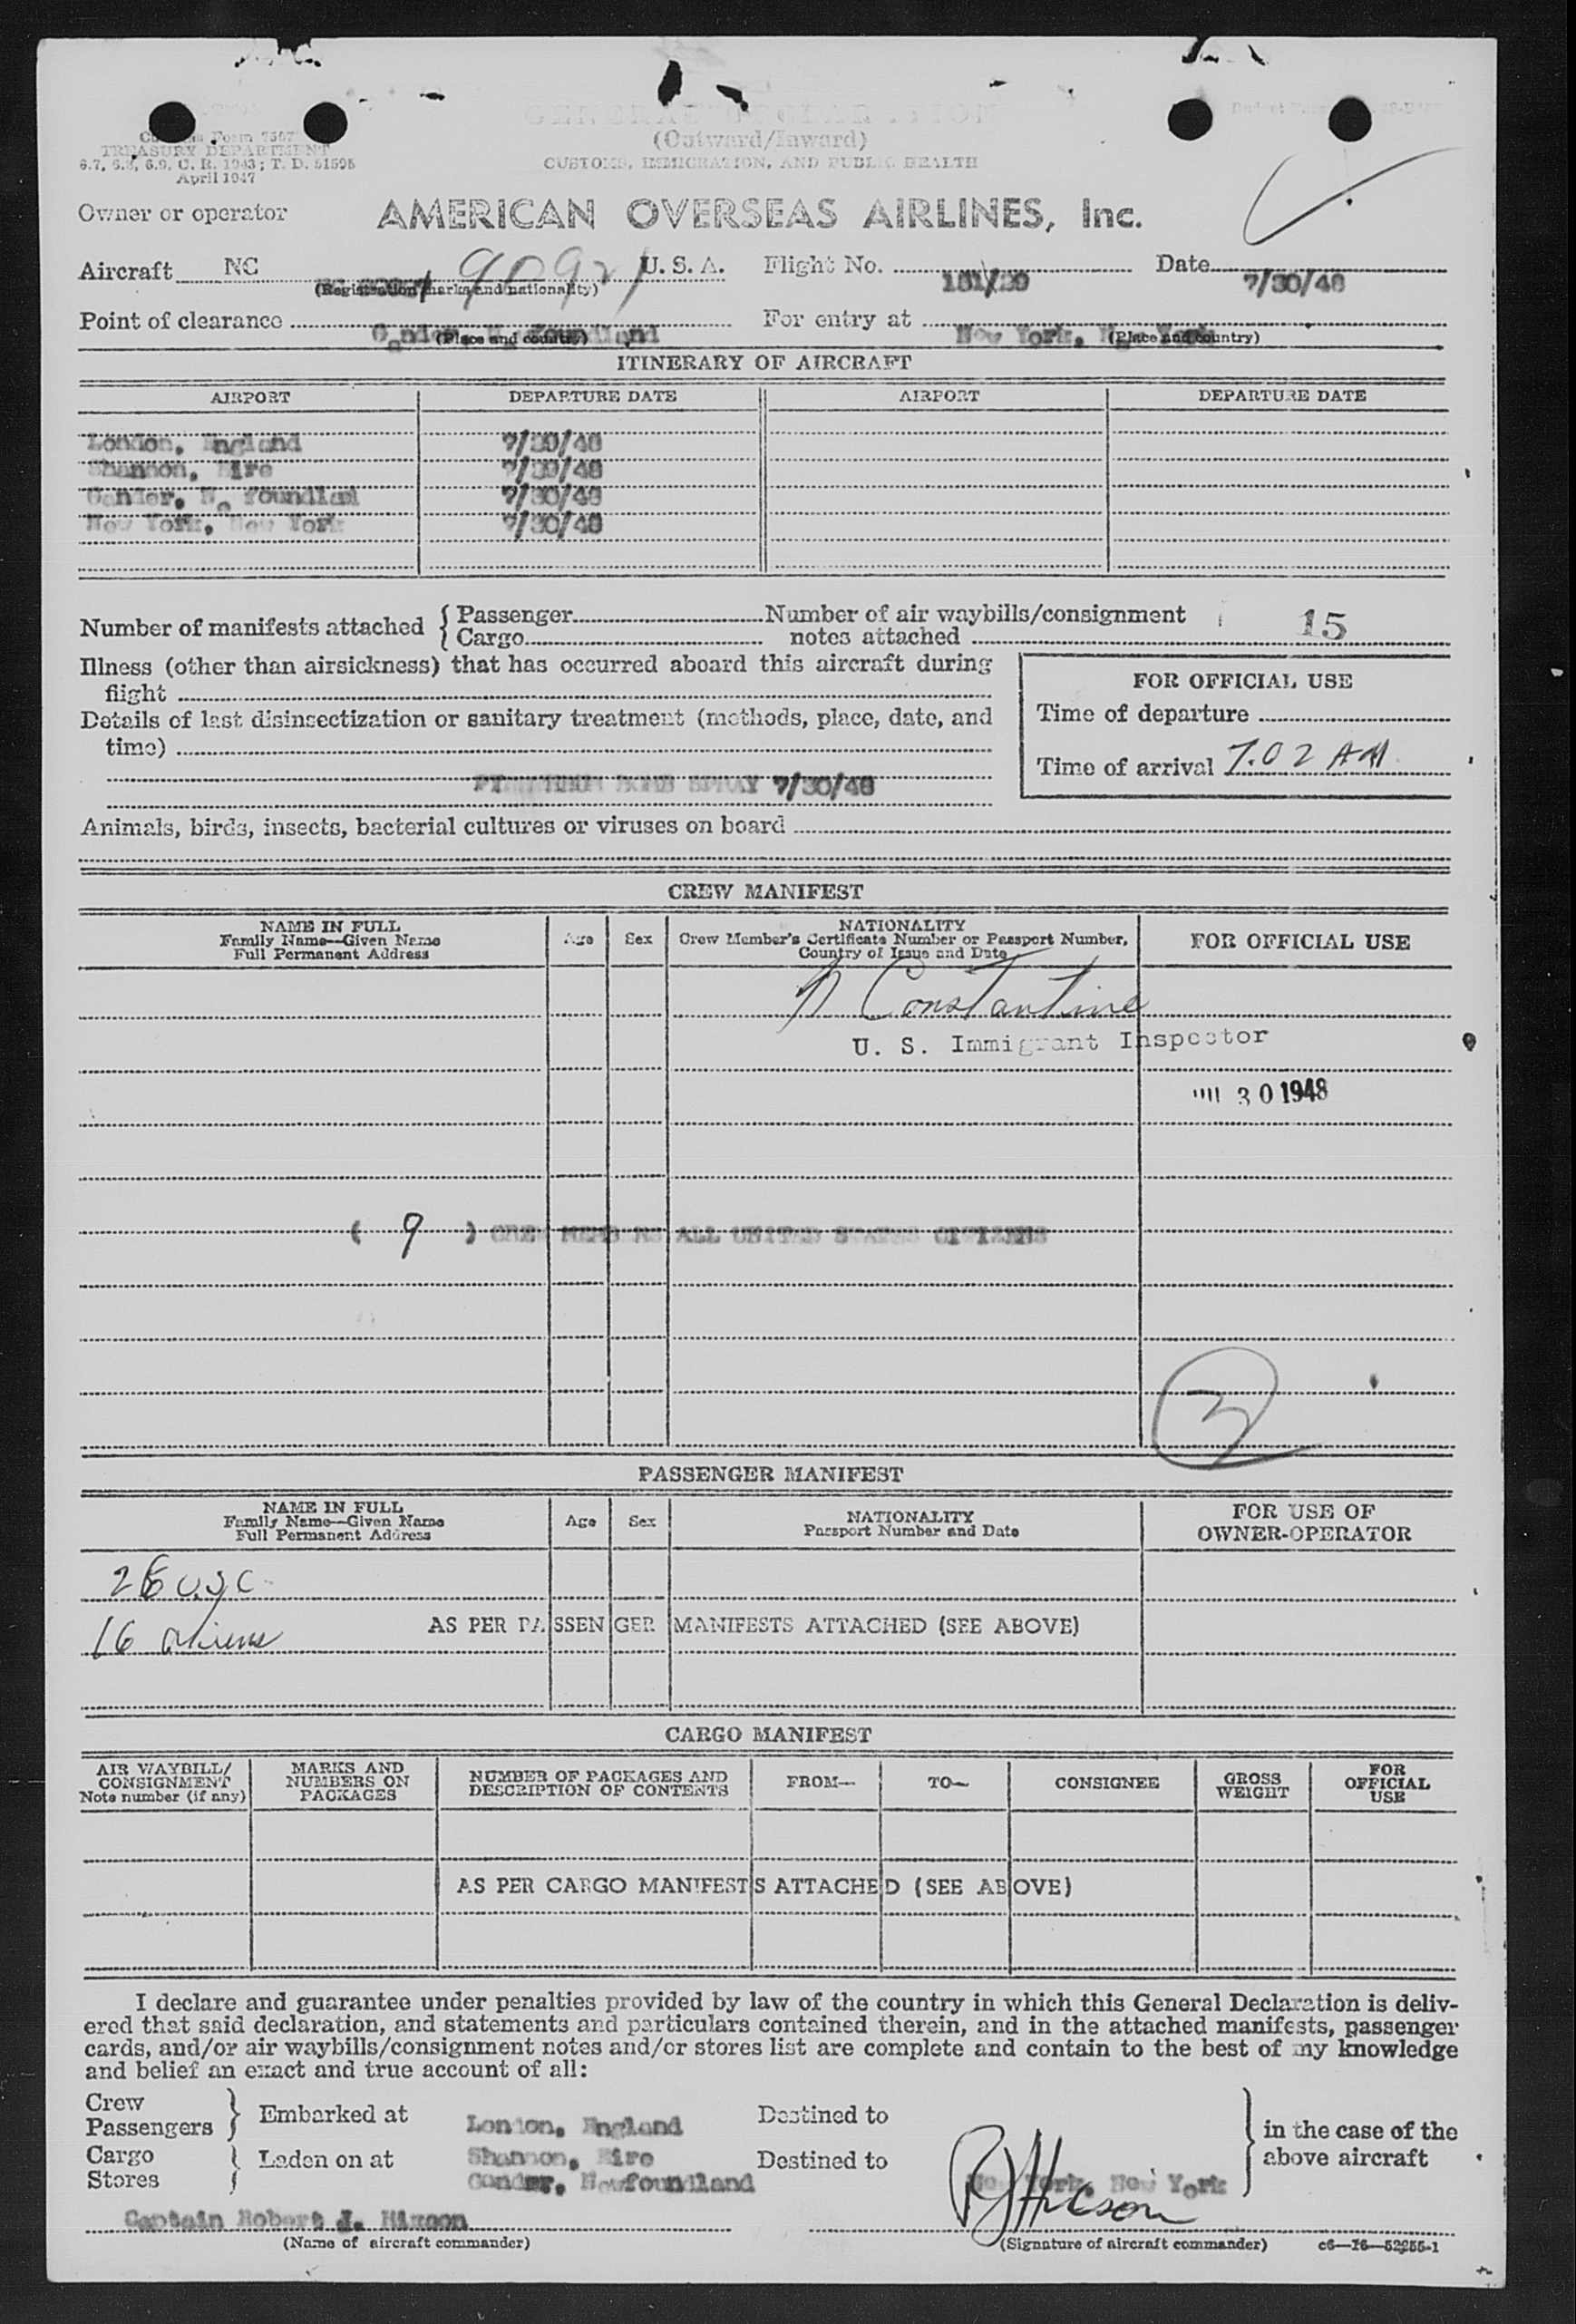 (Outward/Inward)
TREASURY DEPARTMENT
CUSTOMS, IMMIGRATION, AND PUBLIC HEALTH
6.7, 6.8, 6.9, C. R. 1943; T. D. 51595
April 1947
Owner or operator AMERICAN OVERSEAS AIRLINES, Inc.
Aircraft NC 90921 U. S. A. Flight No. Date 7/30/48
(Registration marks and nationality)
Point of clearance Gander, Newfoundland For entry at New York, New York
(Place and country) (Place and country)
ITINERARY OF AIRCRAFT
AIRPORT DEPARTURE DATE AIRPORT DEPARTURE DATE
London, England
Shannon, Eire
Gander, N. foundland 7/30/48
New York, New York 7/30/48
Number of manifests attached { Passenger Number of air waybills/consignment
Cargo notes attached 15
Illness (other than airsickness) that has occurred aboard this aircraft during
flight
FOR OFFICIAL USE
Details of last disinsectization or sanitary treatment (methods, place, date, and
time)
Time of departure
Time of arrival 7.02 AM
BOMB SPRAY 7/30/48
Animals, birds, insects, bacterial cultures or viruses on board
CREW MANIFEST
NAME IN FULL
Family Name—Given Name
Full Permanent Address
Age Sex
NATIONALITY
Crew Member's Certificate Number or Passport Number,
Country of Issue and Date
FOR OFFICIAL USE
Constantine
U. S. Immigrant Inspector
30 1948
( 9 ) CREW MEMBERS ALL UNITED STATES CITIZENS
2
PASSENGER MANIFEST
NAME IN FULL
Family Name—Given Name
Full Permanent Address
Age Sex
NATIONALITY
Passport Number and Date
FOR USE OF
OWNER-OPERATOR
U.S.C.
16 aliens AS PER PASSENGER MANIFESTS ATTACHED (SEE ABOVE)
CARGO MANIFEST
AIR WAYBILL/
CONSIGNMENT
Note number (if any)
MARKS AND
NUMBERS ON
PACKAGES
NUMBER OF PACKAGES AND
DESCRIPTION OF CONTENTS
FROM— TO— CONSIGNEE
GROSS
WEIGHT
FOR
OFFICIAL
USE
AS PER CARGO MANIFESTS ATTACHED (SEE ABOVE)
I declare and guarantee under penalties provided by law of the country in which this General Declaration is deliv-
ered that said declaration, and statements and particulars contained therein, and in the attached manifests, passenger
cards, and/or air waybills/consignment notes and/or stores list are complete and contain to the best of my knowledge
and belief an exact and true account of all:
Crew
Passengers } Embarked at London, England Destined to
in the case of the
Cargo
Stores } Laden on at Shannon, Eire Destined to
above aircraft
Gander, Newfoundland New York, New York
Captain Robert J. Hixson RJHixson
(Name of aircraft commander) (Signature of aircraft commander) c6—16—52255-1